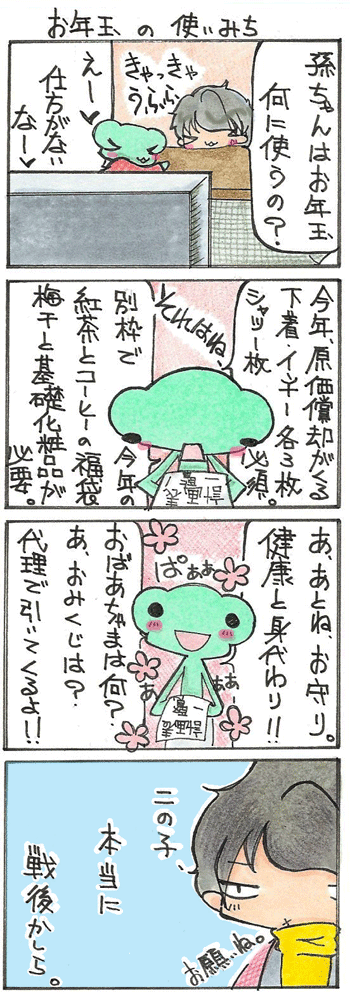 お年玉の使いみち
孫ちゃんはお年玉
何に使うの？
きゃっきゃ
うふふ
えー
仕方がない
なー
今年、原価償却がくる
下着・インナー各3枚
シャツ一枚
必須。
それはね、
別枠で
今年の
紅茶とコーヒーの福袋
梅干と基礎化粧品が
必要。
計画表
一覧
あ、あとね、お守り。
健康と身代わり!!
ぱぁぁ
ぁぁ
あぁ
おばあちゃまは何？
あ、おみくじは？
代理で引いてくるよ!!
計画表
一覧
この子、
本当に
戦後かしら。
お願いね。